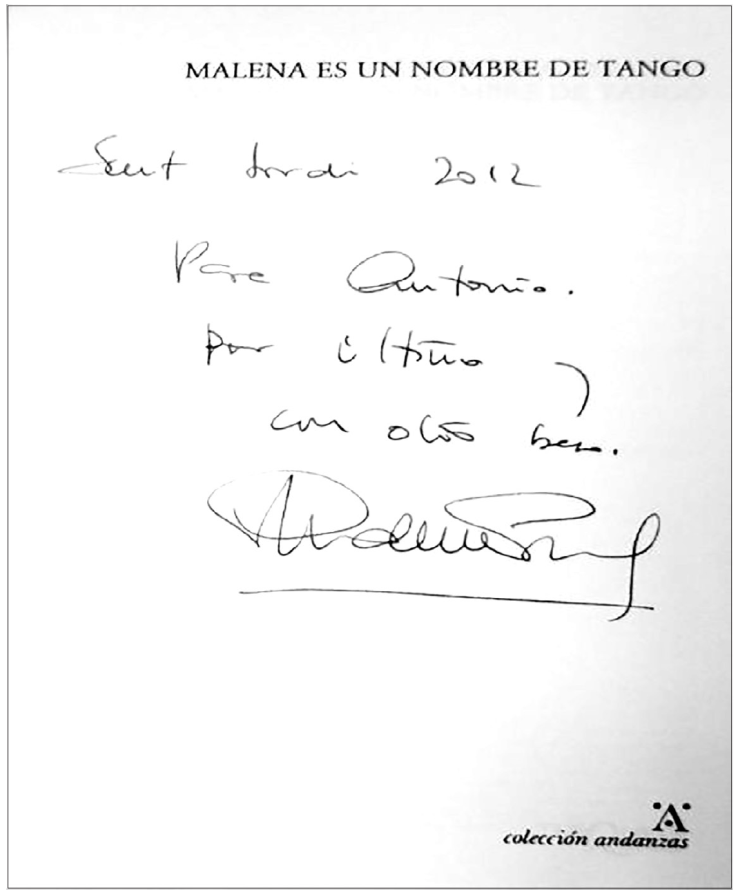 MALENA ES UN NOMBRE DE TANGO
Sant Jordi 2012
Para Antonio.
por último y
con otro beso.
Almudena Grandes
colección andanzas